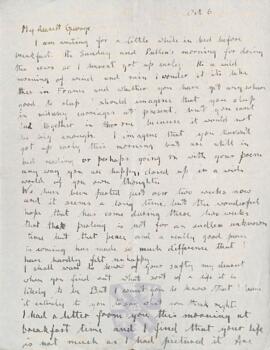 Oct 6
My dearest George
I am writing for a little while in bed before
breakfast. It's Sunday and Father's morning for doing
the cows so I haven't got up early. It's a wild
morning of wind and rain I wonder if it's like
this in France and whether you have got any where
good to sleep. I should imagine that you sleep
in railway carriages at present, but you can't
all together in the one because it would not
be big enough. I imagine that you haven't
got up early this morning but are still in
bed reading or perhaps going on with your poem
any way you are happy, closed up in a wide
world of your own thoughts.
We have been parted just over two weeks now
and it seems a long time, but the wonderful
hope that has come during these two weeks
that the parting is not for an endless unknown
time but that peace and a really good peace
is coming has made so much difference that I
have hardly felt unhappy.
I shall want to know of your safety my dearest
when you find out what sort of a life it is
likely to be. But I want you to know that I leave
it entirely to you to say what you think right.
I had a letter from you this morning at
breakfast time and I find that your life
is not much as I had pictured it. Are